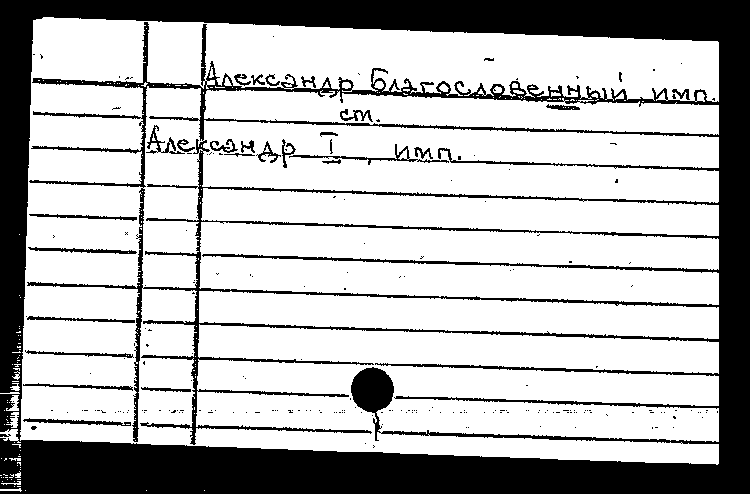 Александр Благословенный, имп.
ст.
Александр I, имп.